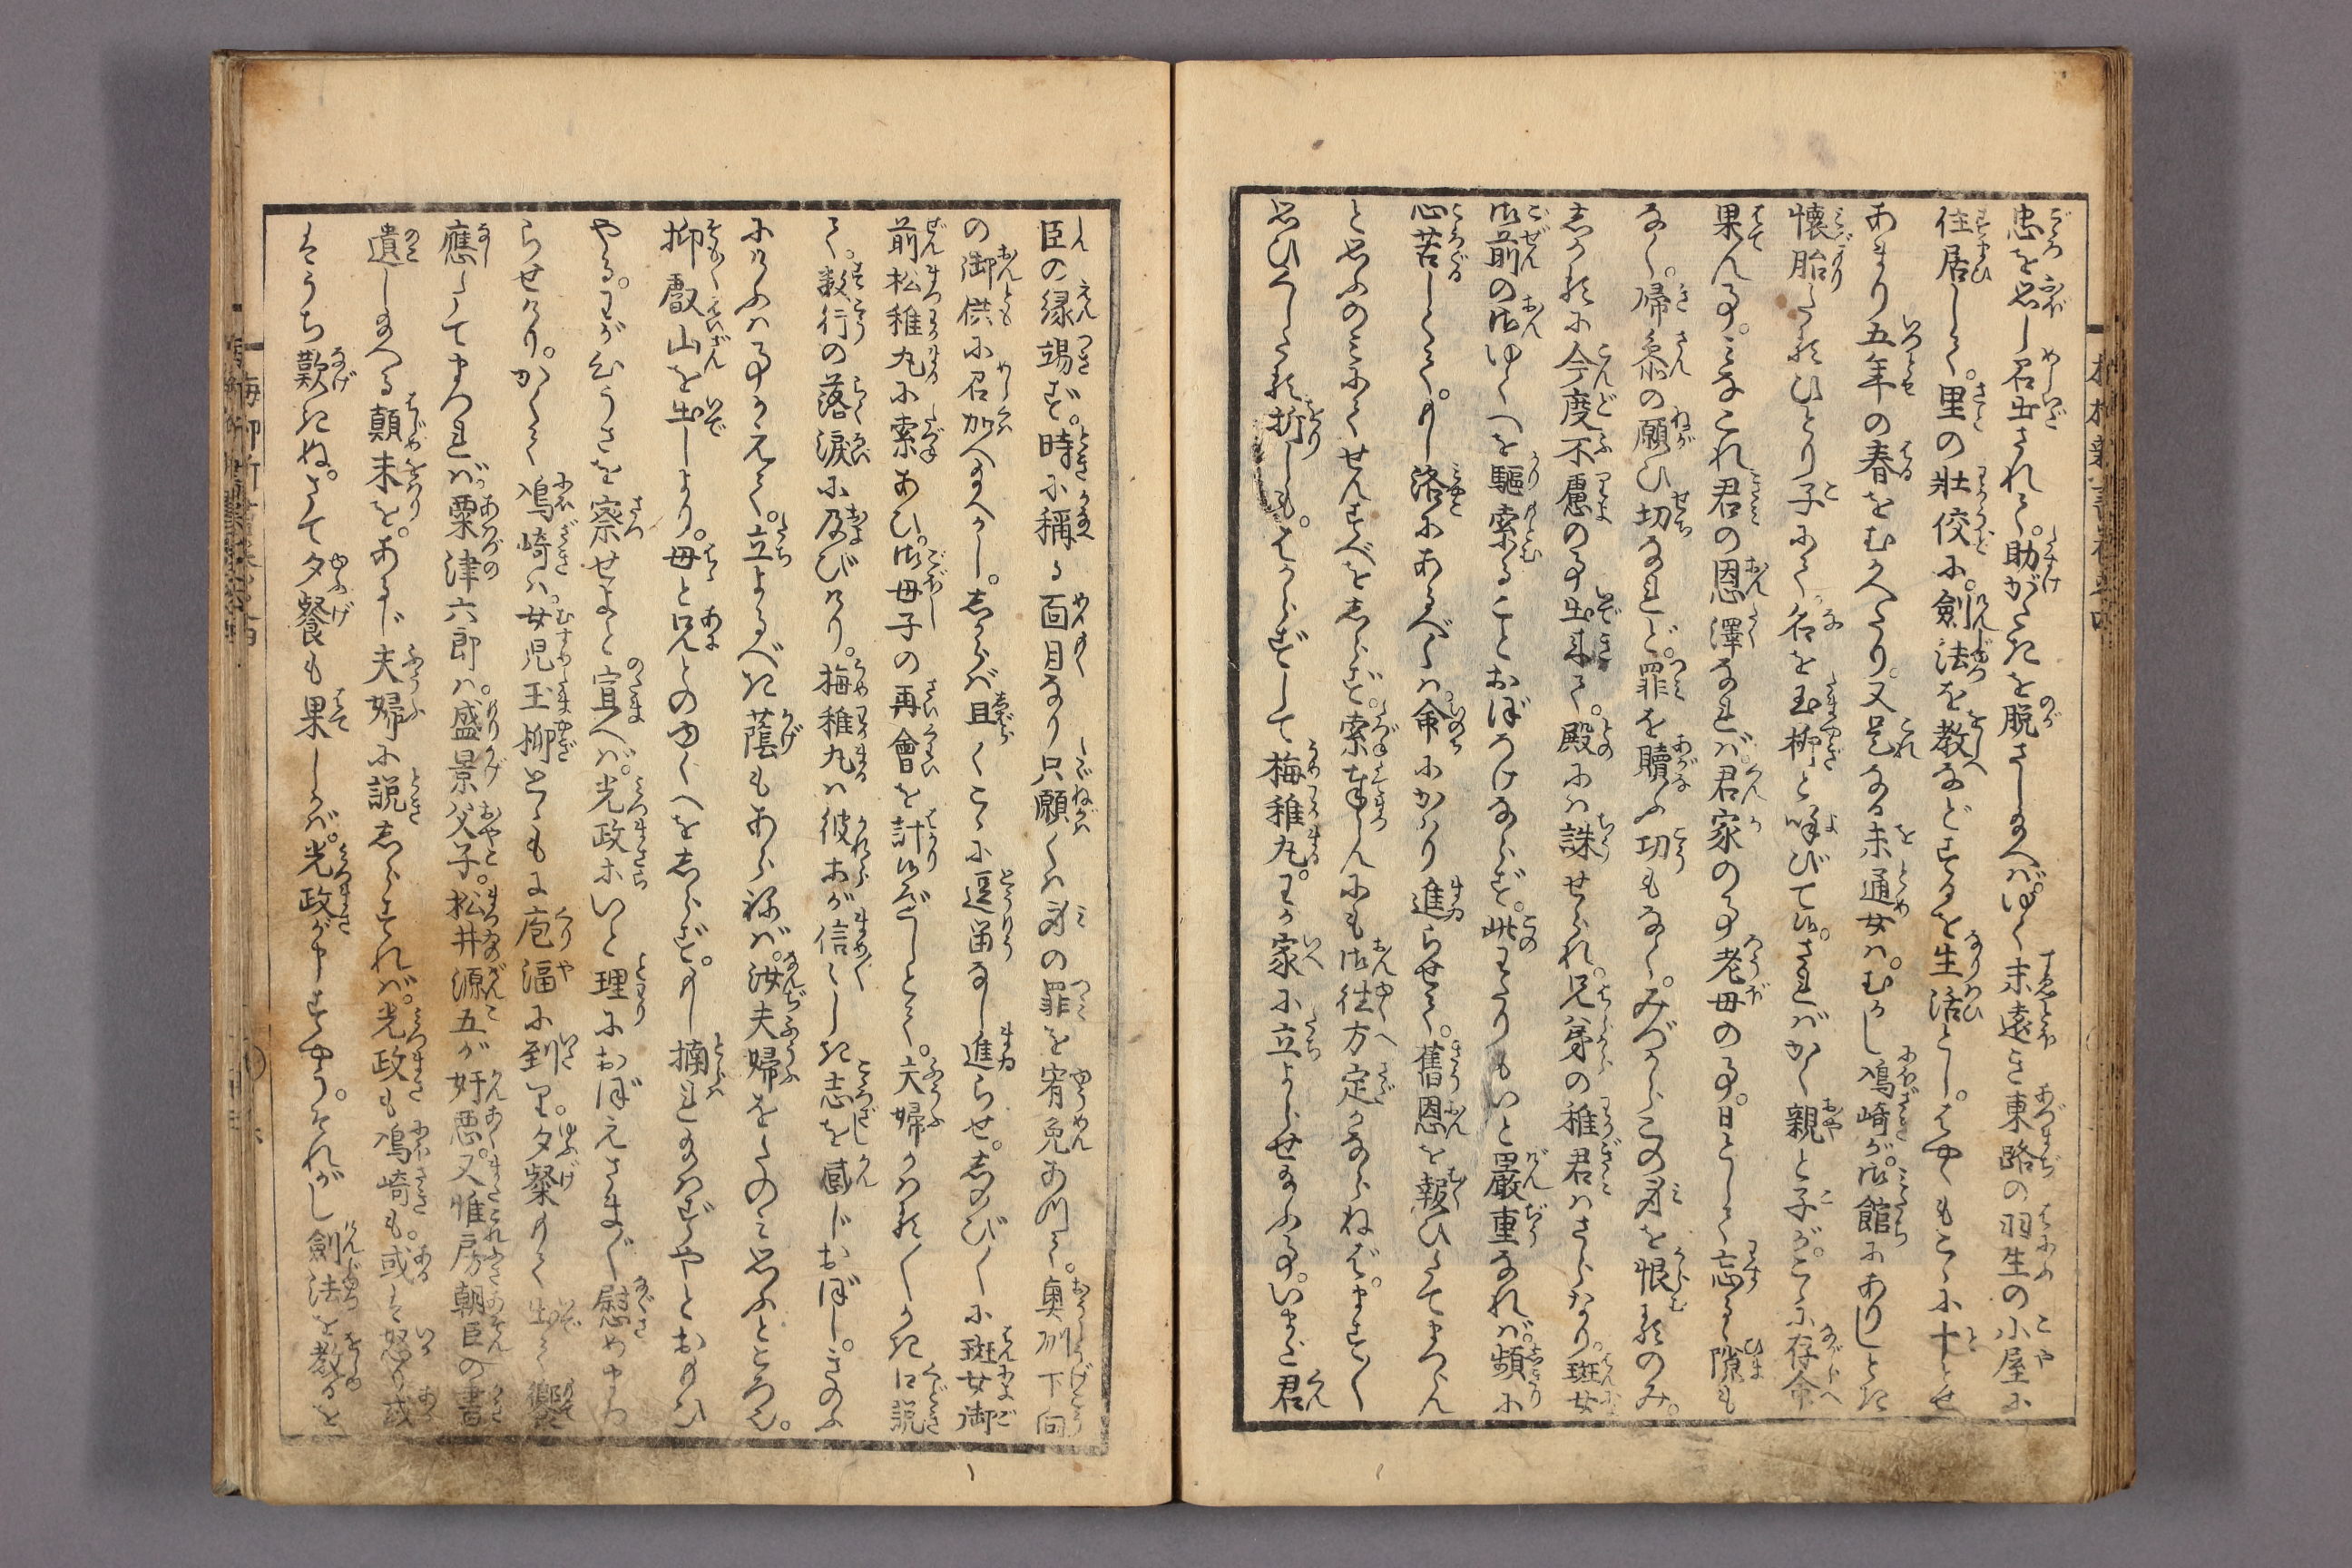 忠を思し召出されて。助がたきを脱さし給へば。ゆく末遠き東路の羽生の小屋に
住居して。里の壮佼に。劍法を教などするを生活とし。はやくもこゝに十とせ
あまり五年の春をむかへたり。又是なる未通女は。むかし鳰崎が。御館にありしとき
懐胎たるひとり子にて。名を玉柳と呼びて侍。さればかく親と子が。こゝに存命
果ん事。みなこれ君の恩澤なれば。君家の事老母の事。日としく忘るゝ隙も
なく。帰参の願ひ切なれど。罪を贖ふ功もなく。みづからこの身を恨るのみ。
しかるに今度不慮の事出来て。殿には誅せられ。兄弟の稚君はさらなり。斑女
御前の御ゆくへを驅索ることおぼろけならず。此わたりもいと嚴重なれば。頻に
心苦しくて。もし洛にあるべくは命にかはり進らせて。舊恩を報ひたてまつらん
と思ふのみにてせんすべをしらず。索奉らんにも御往方定かならねば。ますく
思ひくしたる折しも。はからずして梅稚丸。わが家に立よらせ給ふ事。いまだ君
臣の縁竭ず。時に稱る面目なり只願くは身の罪を宥免ありて。奥州下向
の御供に召加へ給へかし。しからば且くこゝに逗留なし進らせ。しのびくに斑女御
前松稚丸に索あひ。御母子の再會を計侍らんとて。夫婦かはるく口説
て。数行の落涙に及びけり。梅稚丸は彼等が信しき志を感じおぼし。きのふ
にけふは事かえて。立よるべき蔭もあらねば。汝夫婦をたのみ思ふところ也。
抑叡山を出しより。母と兄とのゆくへをしらず。もし擒れ給はずやとおもひ
やる。わが心うさを察せよと宣へば。光政ホいと理におぼえさまぐ慰めまゐ
らせけり。かくて鳰崎は。女児玉柳ともに庖湢に到り。夕餐もて出て饗
應たてまつれば。粟津六郎は。盛景父子。松井源五が奸惡。又惟房朝臣の書
遺し給へる顛末を。あるじ夫婦に説しらすれば。光政も鳰崎も。或は怒り或
はうち歎きぬ。さて夕餐も果しかば。光政が申すやう。それがし劍法を教るを